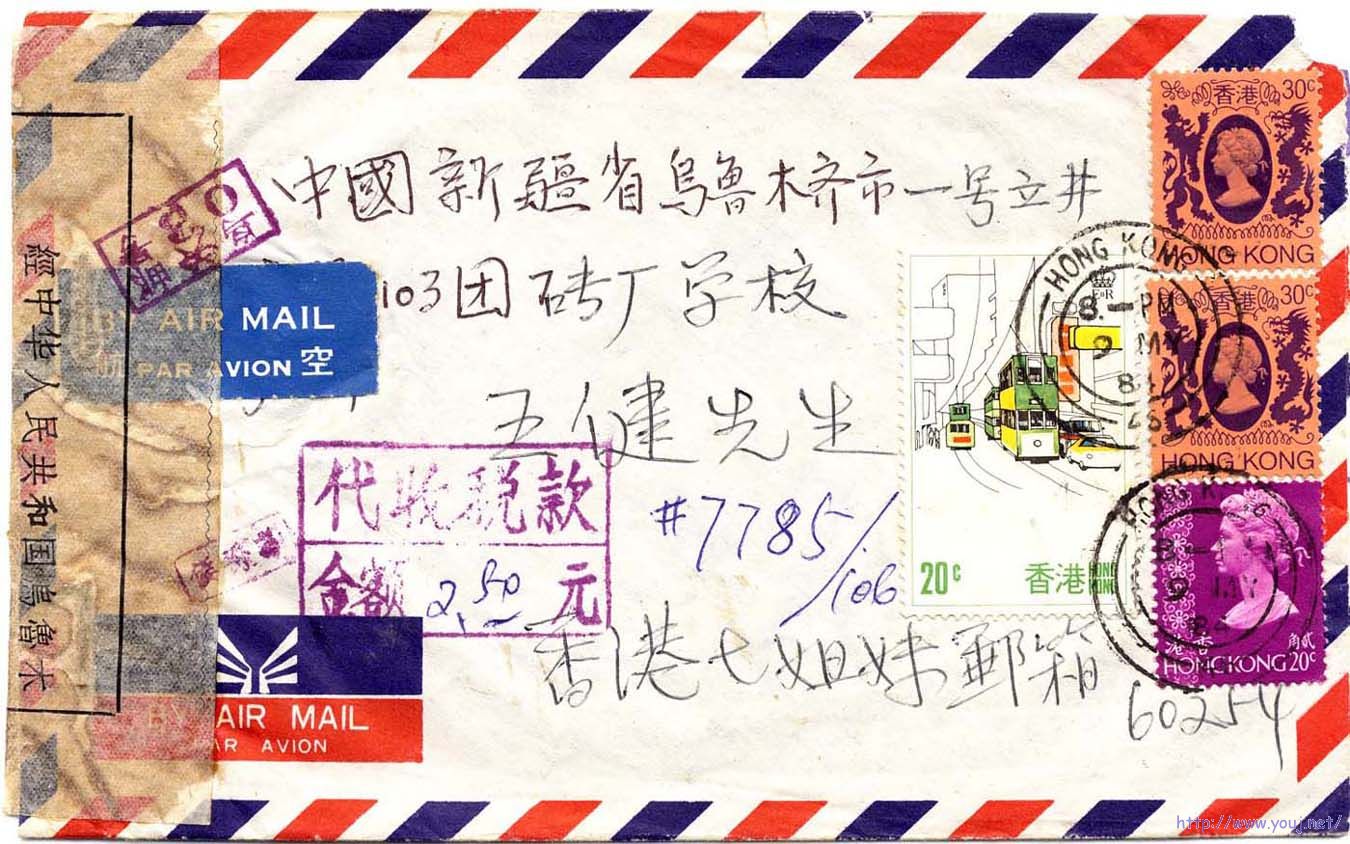 中國新疆省烏魯木齐市一号立井
103团砖厂学校
五健先生
#7785/106
香港七姐妹郵箱
60254
BY AIR MAIL
PAR AVION 空
代收税款
金额 2.50 元
BY AIR MAIL
PAR AVION
經中华人民共和国烏魯木
香港 30c
HONG KONG
香港 30c
HONG KONG
20c 香港 HONG KONG
港香 角貳
HONG KONG 20c
HONG KONG
8 - PM
9 MY
HONG KONG
9 MY
http://www.youj.net/